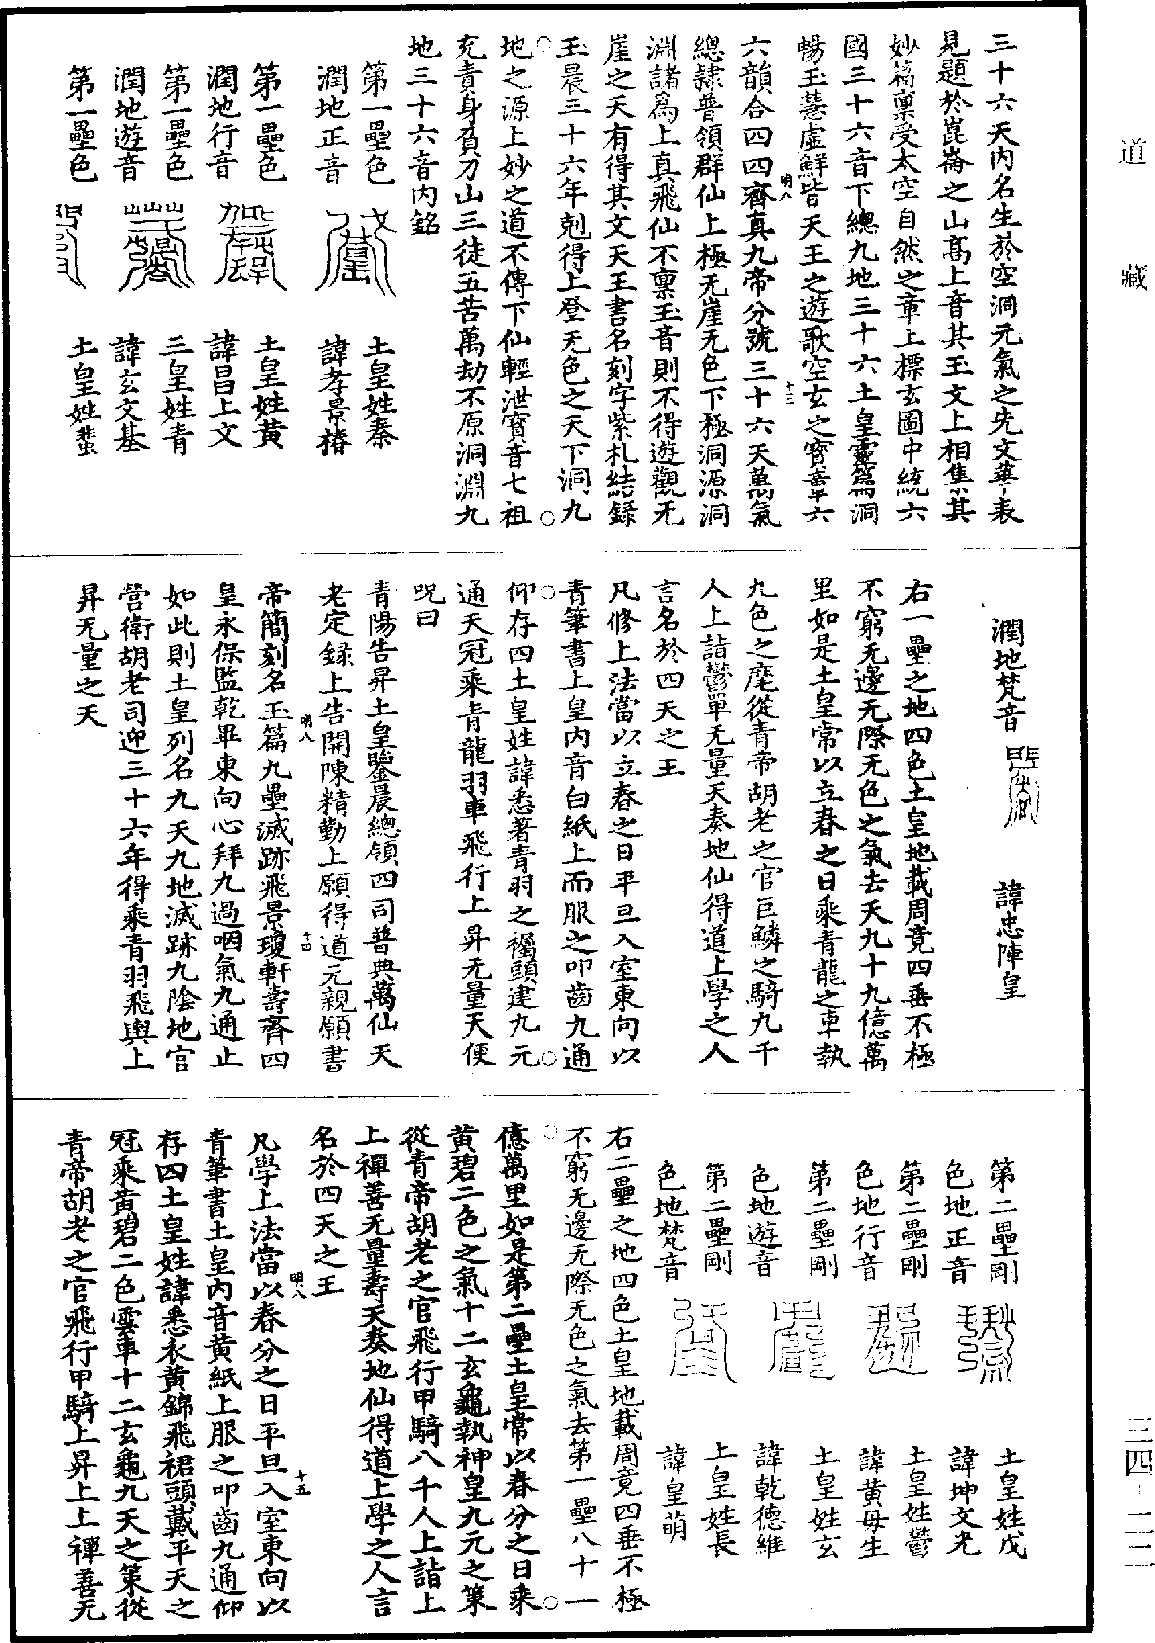 道藏
三四-二二
三十六天內名生於空洞元氣之先文華表
見題於崑崙之山高上音其玉文上相集其
妙篇稟受太空自然之章上標玄圖中統六
國三十六音下總九地三十六土皇靈篇洞
暢玉慧虛鮮皆天王之遊歌空玄之寳章六
六韻合四四齊真九帝分號三十六天萬氣
明八
十三
總隷普領群仙上極无崖无色下極洞源洞
淵諸為上真飛仙不稟玉音則不得遊觀无
崖之天有得其文天王書名刻字紫札結録
玉晨三十六年剋得上登无色之天下洞九
地之源上妙之道不傳下仙輕泄寳音七祖
充責身負刀山三徒五苦萬劫不原洞淵九
地三十六音內銘
第一壘色 土皇姓秦
潤地正音 諱孝景椿
第一壘色 土皇姓黃
潤地行音 諱昌上文
第一壘色 土皇姓青
潤地遊音 諱玄文基
第一壘色 土皇姓蜚
潤地梵音 諱忠陣皇
右一壘之地四色土皇地載周竟四垂不極
不窮无邊无際无色之氣去天九十九億萬
里如是土皇常以立春之日乘青龍之車執
九色之麾從青帝胡老之官巨鱗之騎九千
人上詣鬱單无量天奏地仙得道上學之人
言名於四天之王
凡修上法當以立春之日平旦入室東向以
青筆書上皇內音白紙上而服之叩齒九通
仰存四土皇姓諱悉著青羽之襡頭建九元
通天冠乘青龍羽車飛行上昇无量天便
呪曰
青陽告昇土皇鑒晨總領四司普典萬仙天
老定録上告開陳精勤上願得道元親願書
明八
十四
帝簡刻名玉篇九壘滅跡飛景瓊軒壽齊四
皇永保監乾畢東向心拜九過咽氣九通止
如此則土皇列名九天九地滅跡九陰地官
營衛胡老司迎三十六年得乘青羽飛輿上
昇无量之天
第二壘剛 土皇姓戊
色地正音 諱坤文光
第二壘剛 土皇姓鬱
色地行音 諱黃母生
第二壘剛 土皇姓玄
色地遊音 諱乾德維
第二壘剛 土皇姓長
色地梵音 諱皇萌
右二壘之地四色土皇地載周竟四垂不極
不窮无邊无際无色之氣去第一壘八十一
億萬里如是第二壘土皇常以春分之日乘
黃碧二色之氣十二玄龜執神皇九元之策
從青帝胡老之官飛行甲騎八千人上詣上
上禪善无量壽天奏地仙得道上學之人言
名於四天之王
明八
十五
凡學上法當以春分之日平旦入室東向以
青筆書土皇內音黃紙上服之叩齒九通仰
存四土皇姓諱悉衣黃錦飛裙頭戴平天之
冠乘黃碧二色雲車十二玄龜九天之策從
青帝胡老之官飛行甲騎上昇上上禪善无